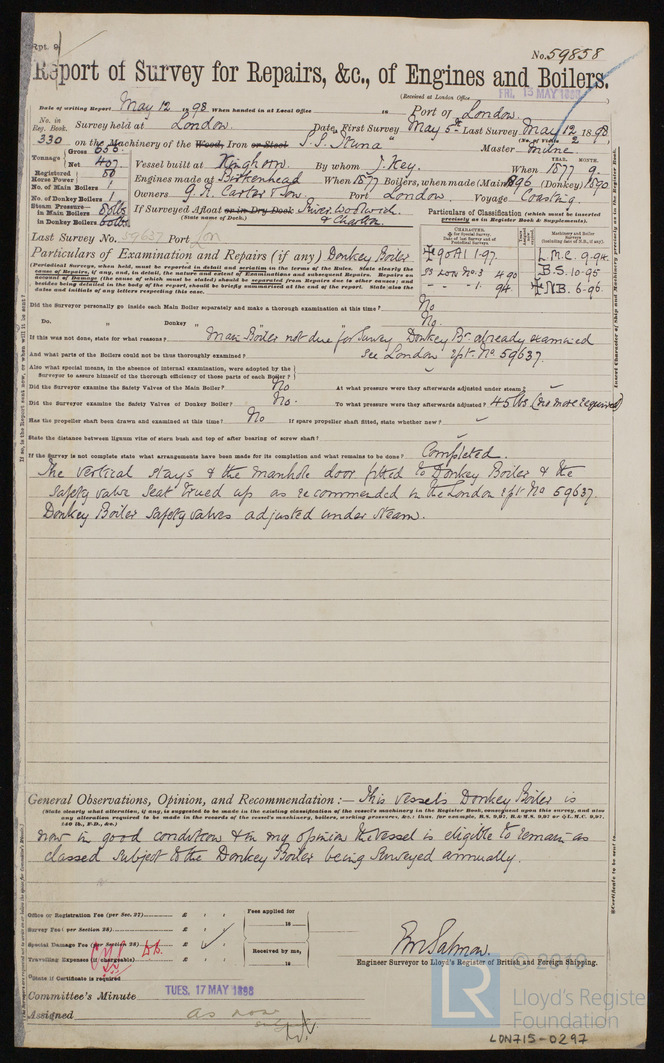 Rpt. 9
No. 59858
Report of Survey for Repairs, &c., of Engines and Boilers.
(Received at London Office FRI. 13 MAY 1898
Date of writing Report May 12 1898 When handed in at Local Office 18 Port of London.
No. in Reg. Book. Survey held at London. Date, First Survey May 5th Last Survey May 12 1898
(No. of Visits 2)
330 on the Machinery of the Wood, Iron or Steel S.S. Master Milne
Tonnage Gross 656 Net 407 Vessel built at Kinghorn. By whom J. Key. When 1877 YEAR. MONTH. 9.
Registered Horse Power 80 Engines made at Birkenhead When 1877 Boilers, when made (Main) 1896 (Donkey) 1890
No. of Main Boilers 1 Owners G. R. Carter & Son. Port London Voyage Coasting.
No. of Donkey Boilers 1
Steam Pressure in Main Boilers If Surveyed Afloat or in Dry Dock River, Woolwich & Charlton
in Donkey Boilers (State name of Dock.)
Particulars of Classification (which must be inserted precisely as in Register Book & Supplements).
Last Survey No. 59637 Port Lon
CHARACTER. Machinery and Boiler Surveys
90 A1 1.97. L.M.C. 9.94.
SS LON No. 3 4 90 B.S. 10.95
- - - 1. 94 N.B. 6.96.
Particulars of Examination and Repairs (if any) Donkey Boiler
(Periodical Surveys, when held, must be reported in detail and seriatim in the terms of the Rules. State clearly the
cause of Repairs, if any, and, in detail, the nature and extent of Examinations and subsequent Repairs. Repairs on
account of Damage (the cause of which must be stated) should be separated from Repairs due to other causes; and
besides being detailed in the body of the report, should be briefly summarized at the end of the report. State also the
dates and initials of any letters respecting this case.
Did the Surveyor personally go inside each Main Boiler separately and make a thorough examination at this time? No
Do. „ Donkey „ „ No.
If this was not done, state for what reasons? Main Boiler not due for Survey Donkey Br. already examined
And what parts of the Boilers could not be thus thoroughly examined? See London rpt. No. 59637.
Also what special means, in the absence of internal examination, were adopted by the
Surveyor to assure himself of the thorough efficiency of those parts of each Boiler?
Did the Surveyor examine the Safety Valves of the Main Boiler? No At what pressure were they afterwards adjusted under steam?
Did the Surveyor examine the Safety Valves of Donkey Boiler? No. To what pressure were they afterwards adjusted? 45 lbs (no more required)
Has the propeller shaft been drawn and examined at this time? No If spare propeller shaft fitted, state whether new?
State the distance between lignum vitæ of stern bush and top of after bearing of screw shaft?
If the Survey is not complete state what arrangements have been made for its completion and what remains to be done? Completed.
The vertical stays & the manhole door fitted to Donkey Boiler & the
safety valve seat trued up as recommended in the London rpt. No 59637.
Donkey Boiler safety valves adjusted under steam.
General Observations, Opinion, and Recommendation :— This vessel's Donkey Boiler is
(State clearly what alteration, if any, is suggested to be made in the existing classification of the vessel's machinery in the Register Book, consequent upon this survey, and also
any alteration required to be made in the records of the vessel's machinery, boilers, working pressures, &c.: thus, for example, B.S. 9,97, B.&M.S. 9,97 or L.M.C. 9,97,
140 lb., F.D., &c.)
now in good condition & in my opinion the vessel is eligible to remain as
classed subject to the Donkey Boiler being surveyed annually.
Office or Registration Fee (per Sec. 27) £ : : Fees applied for
Survey Fee (per Section 28) £ : : 18
Special Damage Fee (per Section 28) £ : : Received by me,
Travelling Expenses (if chargeable) £ : : 18
State if Certificate is required
Engineer Surveyor to Lloyd's Register of British and Foreign Shipping.
Committee's Minute TUES. 17 MAY 1898
Assigned as now
© 2019
LR
Lloyd's Register
Foundation
LON715-0297